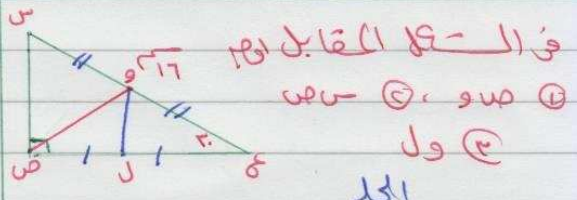 فى الشكل المقابل أوجد
① ص و ، ② س ص
③ و ل
الحل
س
و
١٦ سم
٣٠
ص
ل
ع